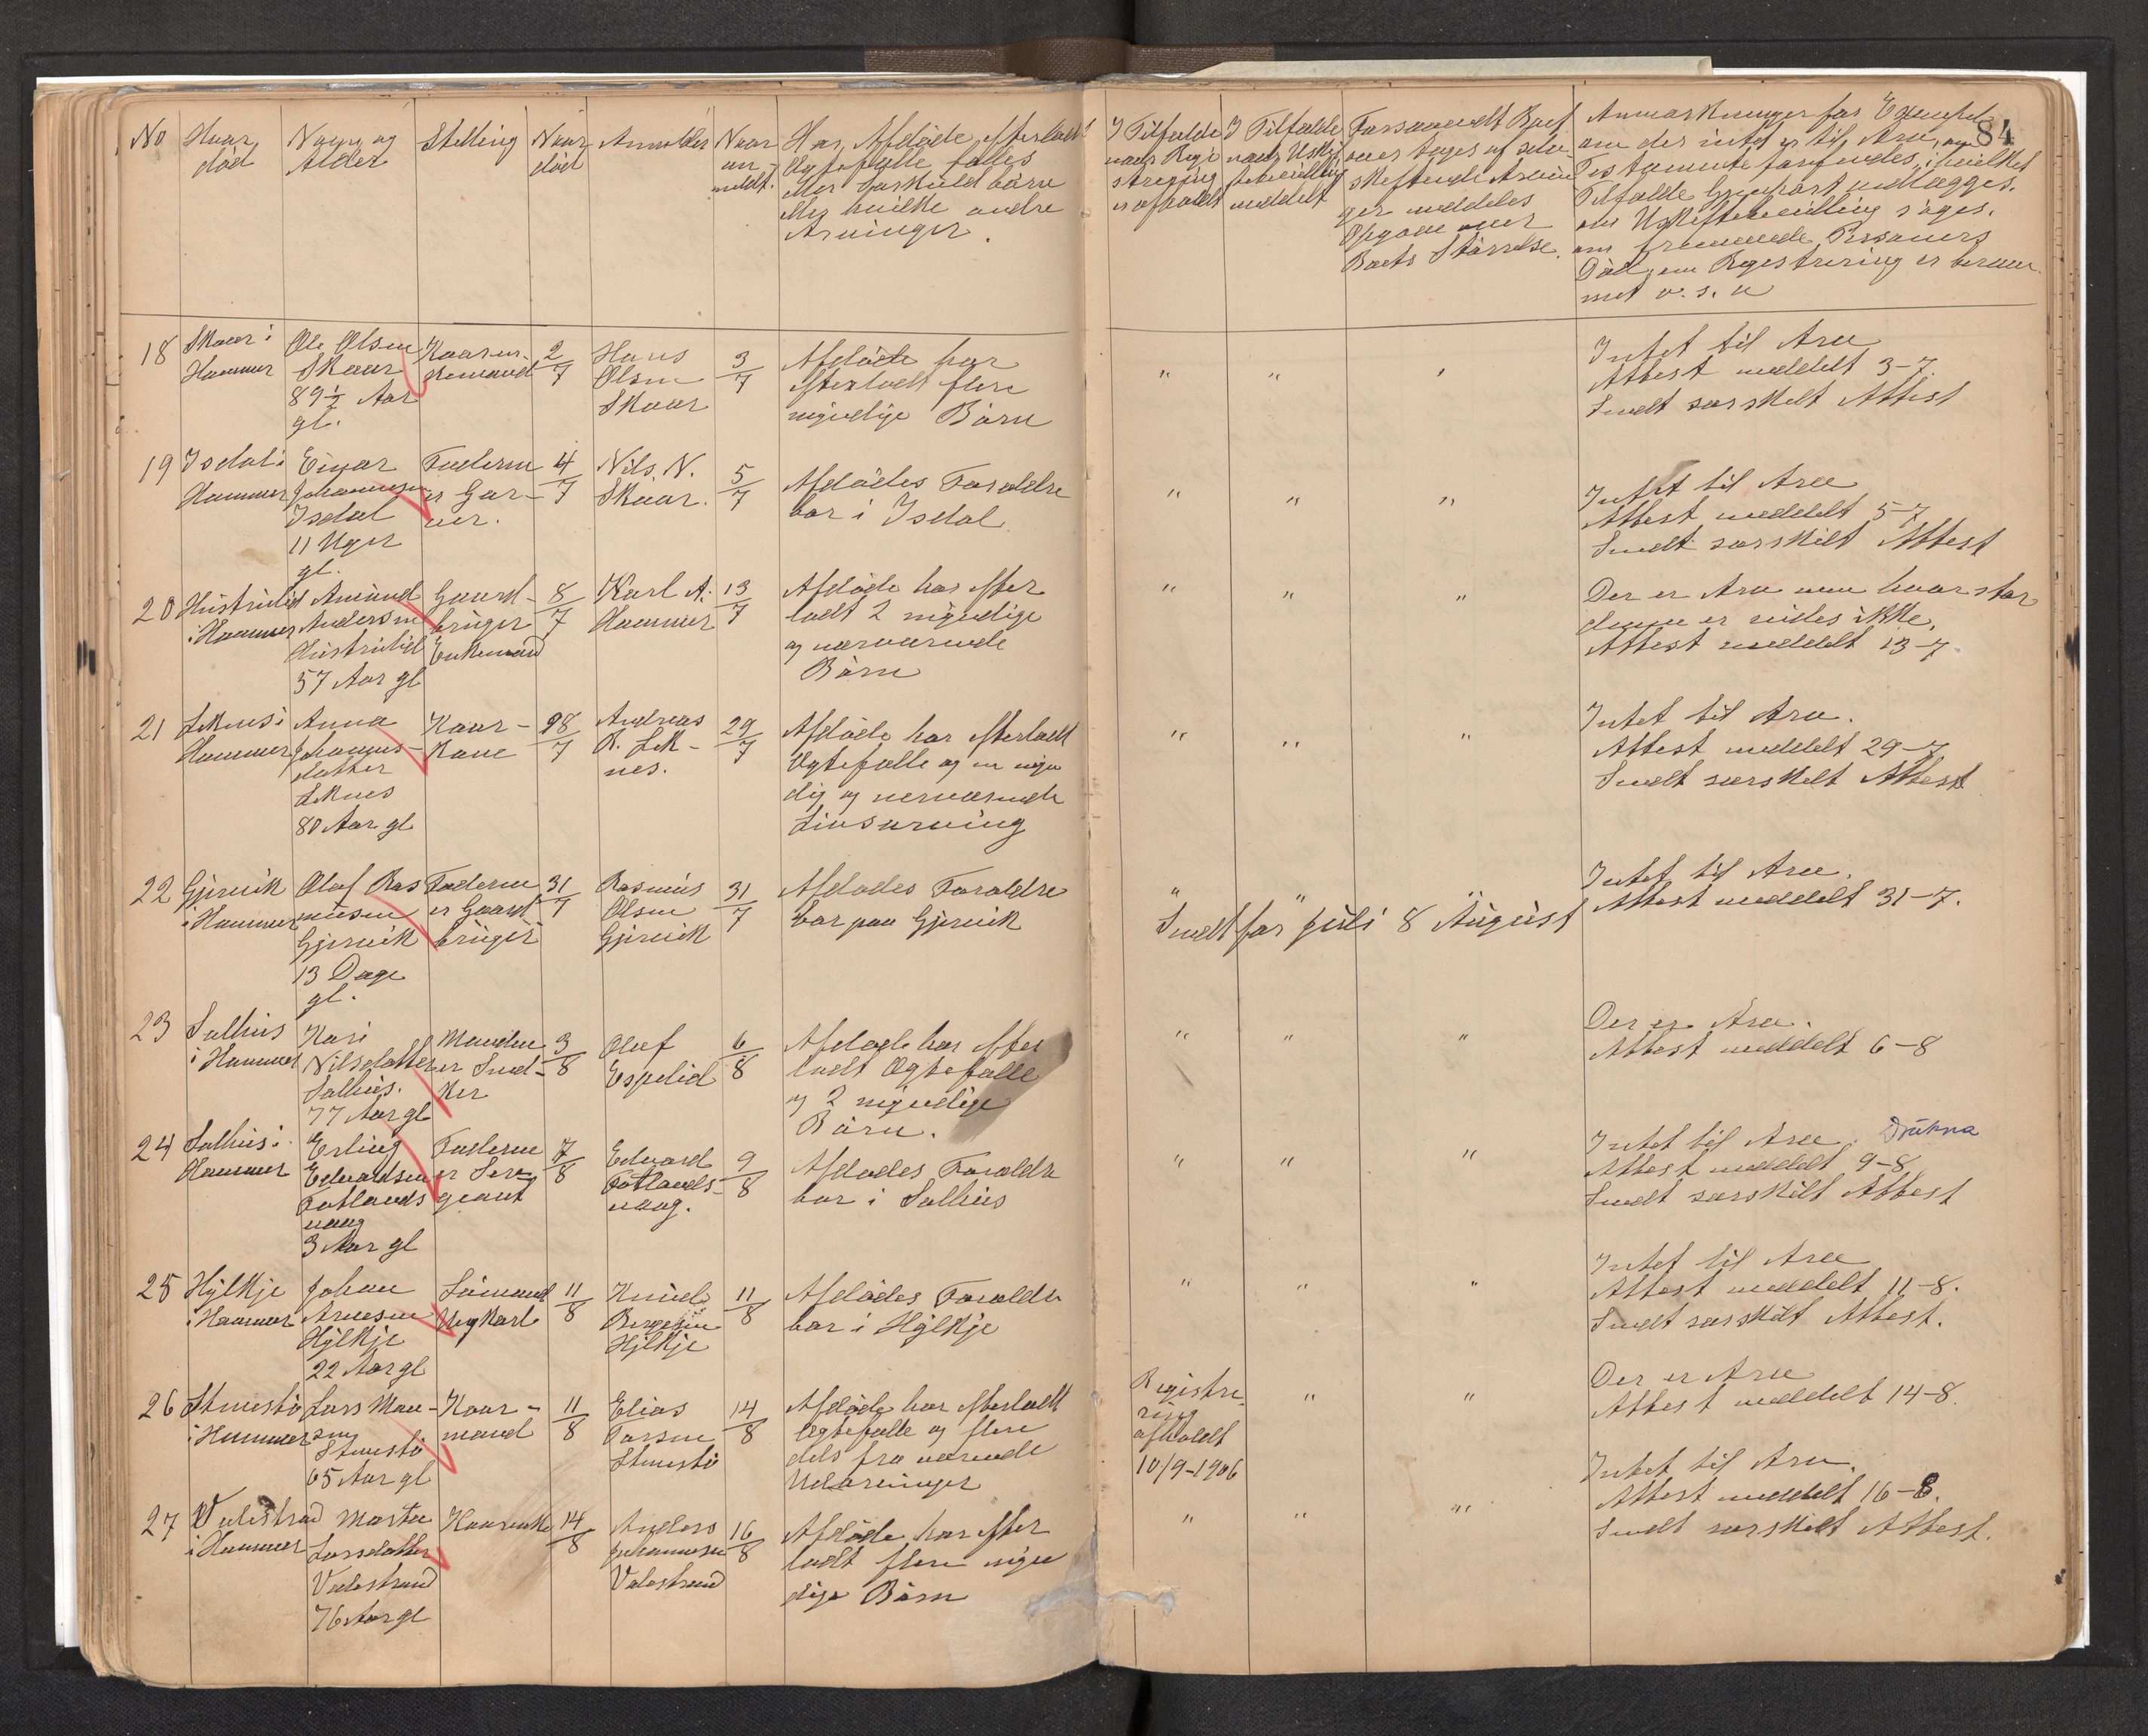 84
No
Hvor
död
Navn og
Alder
Stilling
Naar
död
Anmelder
Naar
an-
meldt.
Har Afdöde efterladt
Ægtefælle fælles
eller Særskildbörn
eller hvilke andre
Arvinger.
I Tilfælde
naar Regi
strering
er afholdt
I Tilfælde
naar Uskif
tebevilling
meddelt
Forsaavidt Boet
over tages af selv-
skiftende Arvin
ger meddeles
Opgave over
Boets Störrelse.
Anmærkninger for Exempel
om der intet er til Arv, om
Testamente forefindes, i hvilket
Tilfælde Gjenpart vedlægges.
om Uskiftebevilling söges.
om fremmede Personers
Död, om Registrering er beram
met o.s.v
18
Skaar i
Hammer
Ole Olsen
Skaar
89½ Aar
gl.
Kaaren-
kemand
2/7
Hans
Olsen
Skaar
3/7
Afdöde har
efterladt flere
myndige Börn
"
"
"
Intet til Arv
Attest meddelt 3-7.
Sendt særskilt Attest
19
Isdal i
Hammer
Einar
Johannesen
Isdal
11 Uger
gl.
Faderen
er Gar-
ver.
4/7
Nils N.
Skaar.
5/7
Afdödes Forældre
bor i Isdal
"
"
"
Intet til Arv
Attest meddelt 5-7
Sendt særskilt Attest
20
Hustrulid
i Hammer
Amund
Andersen
Hustrulid
57 Aar gl
Gaard-
bruger
Enkemand
8/7
Karl A.
Hammer
13/7
Afdöde har efter
ladt 2 myndige
og nærværende
Börn
"
"
"
Der er Arv men hvor stor
denne er vides ikke.
Attest meddelt 13-7.
21
Leknes i
Hammer
Anna
Johannes-
datter
Leknes
80 Aar gl
Kaar-
kone
28/7
Andreas
R. Lek-
nes.
29/7
Afdöde har efterladt
Ægtefælle og en myn
dig og nerværende
Livsarving
"
"
"
Intet til Arv.
Attest meddelt 29-7
Sendt særskilt Attest
22
Gjervik
i Hammer
Olaf Ras
musen
Gjervik
13 Dage
gl.
Faderen
er Gaard
bruger
31/7
Rasmus
Olsen
Gjervik
31/7
Afdödes Forældre
bor paa Gjervik
"
"
"
Intet til Arv.
Attest meddelt 31-7.
Sendt for juli 8 August
23
Salhus
i Hammer
Kari
Nilsdatter
Salhus.
77 Aar gl
Manden
er Sned-
ker
3/8
Olaf
Espelid
6/8
Afdöde har efter
ladt Ægtefælle
og 2 myndige
Börn.
"
"
"
Der er Arv.
Attest meddelt 6-8
24
Salhus i
Hammer
Erling
Edvardsen
Totlands
vaag
3 Aar gl
Faderen
er Ser
geant
7/8
Edvard
Totlands-
vaag.
9/8
Afdödes Forældre
bor i Salhus
"
"
"
Intet til Arv. Drukna
Attest meddelt 9-8
Sendt særskilt Attest
25
Hylkje
i Hammer
Johan
Arnesen
Hylkje
22 Aar gl
Sömand
Ungkarl
11/8
Knud
Hylkje
11/8
Afdödes Forældre
bor i Hylkje
"
"
"
Intet til Arv
Attest meddelt 11-8.
Sendt særskilt Attest.
26
Stenestö
i Hammer
Lars Mon-
sen
Stenestö
65 Aar gl
Kaar-
mand
11/8
Elias
Larsen
Stenestö
14/8
Afdöde har efterladt
Ægtefælle og flere
dels fra værende
Udarvinger
Registre
ring
afholdt
10/9-1906
"
"
Der er Arv
Attest meddelt 14-8.
27
Valestrand
i Hammer
Marta
Larsdatter
Valestrand
76 Aar gl
Kaarenke
14/8
Anders
Johannesen
Valestrand
16/8
Afdöde har efter
ladt flere myn
dige Börn
"
"
"
Intet til Arv.
Attest meddelt 16-8.
Sendt særskilt Attest.